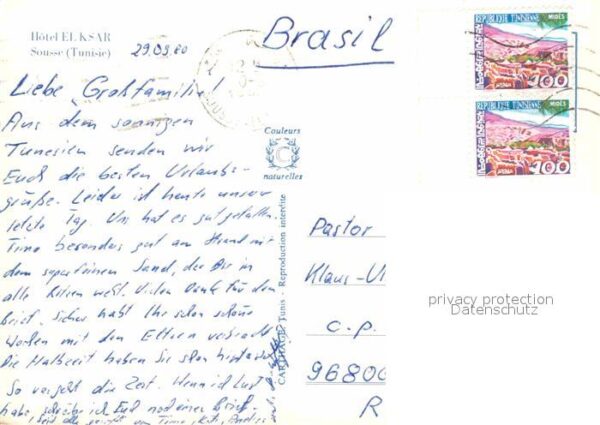 Hôtel EL KSAR
Sousse (Tunisie)
29.09.80
Brasil
REPUBLIQUE TUNISIENNE
MIDES
100
REPUBLIQUE TUNISIENNE
MIDES
100
Liebe Großfamilie!
Aus dem sonnigen
Tunesien senden wir
Euch die besten Urlaubs-
grüße. Leider ist heute unser
letzte Tag. Uns hat es gut gefallen.
Timo besonders gut am Strand mit
dem superfeinen Sand, der in
alle Ritzen weht. Vielen Dank für den
Brief. Sicher habt Ihr schon schöne
Wochen mit den Eltern verbracht
Die Halbzeit haben Sie schon
So vergeht die Zeit. Wenn id Lust
habe, schreibe ich Euch noch einen Brief.
Seid alle von Timo,
Couleurs
C
naturelles
CARTHAGE Tunis - Reproduction interdite
Pastor
Klaus-U
c.p.
96800
R
privacy protection
Datenschutz